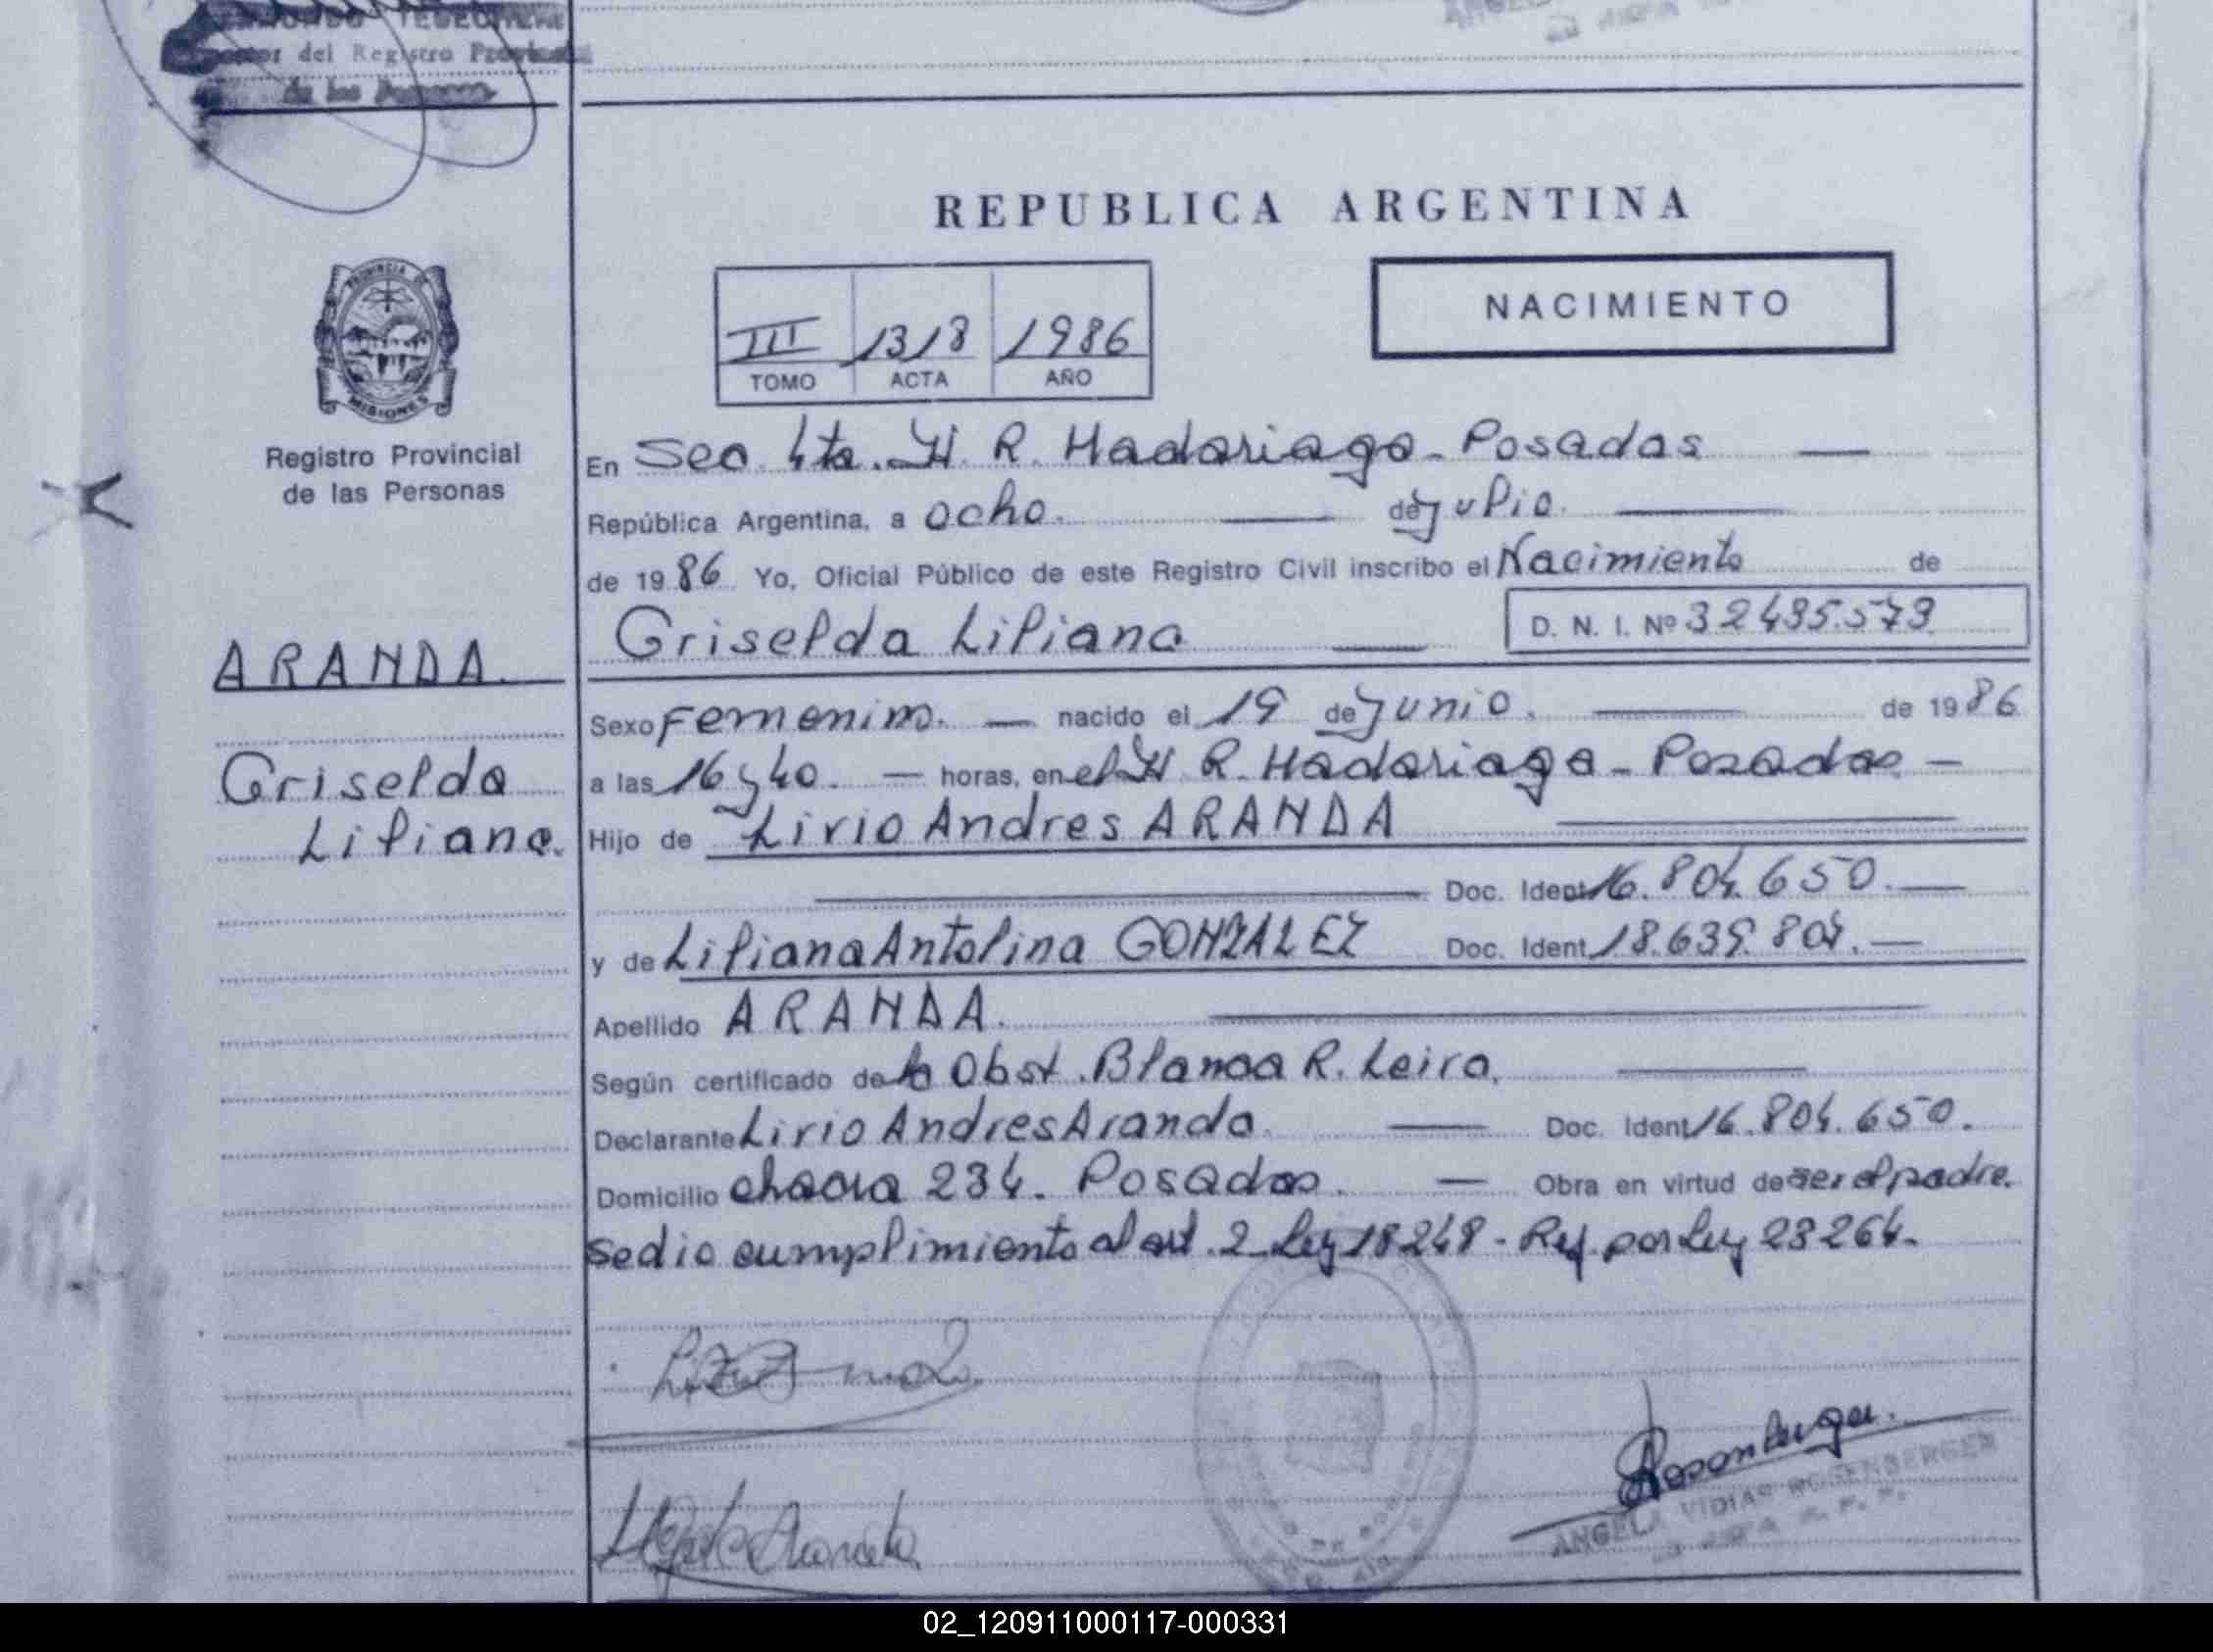 del Registro
de las
REPUBLICA ARGENTINA
NACIMIENTO
III 1318 1986
TOMO ACTA AÑO
PROVINCIA DE
MISIONES
Registro Provincial
de las Personas
En Sec. 4ta. H. R. Madariaga - Posadas
República Argentina, a ocho. de julio.
de 1986 Yo, Oficial Público de este Registro Civil inscribo el Nacimiento de
Griselda Liliana D. N. I. Nº 32435.579
ARANDA.
Griselda
Liliana.
Sexo Femenino. nacido el 19 de junio. de 1986
a las 16 y 40. horas, en el H. R. Madariaga - Posadas
Hijo de Livio Andres ARANDA
Doc. Ident 16.804.650.
y de Liliana Antolina GONZALEZ Doc. Ident. 18.639.804.
Apellido ARANDA.
Según certificado de la Obst. Blanca R. Leiva.
Declarante Livio Andres Aranda. Doc. Ident 16.804.650.
Domicilio chacra 234. Posadas. Obra en virtud de ser el padre.
se dio cumplimiento al art. 2 Ley 18248 - Ref. por Ley 23264.
Rosenberger.
ANGELA VIDIA ROSENBERGER
02_120911000117-000331